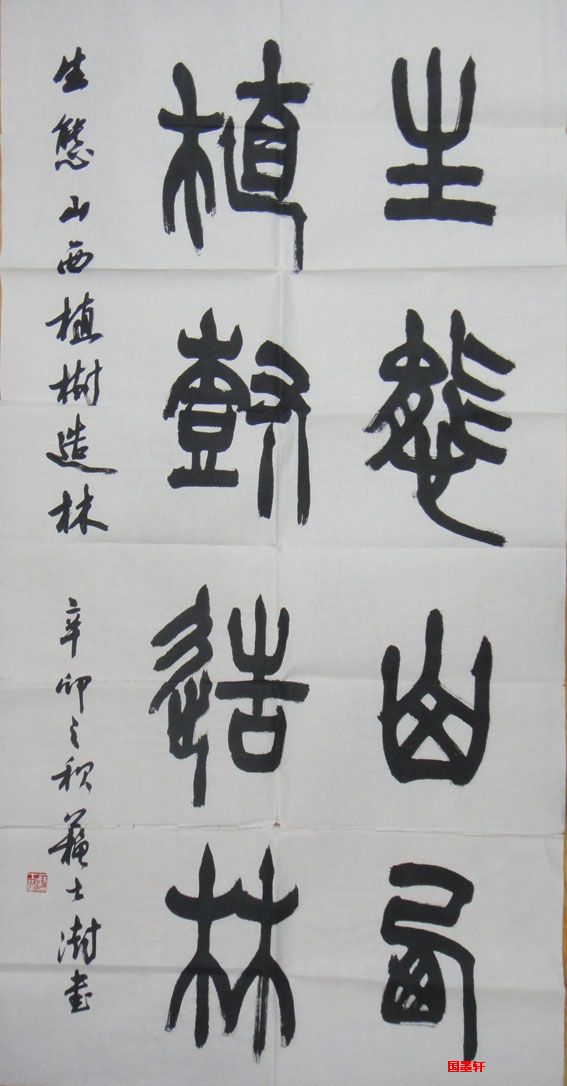 生態山西
植樹造林
生態山西植樹造林 辛卯之秋蘇士澍書
国墨轩